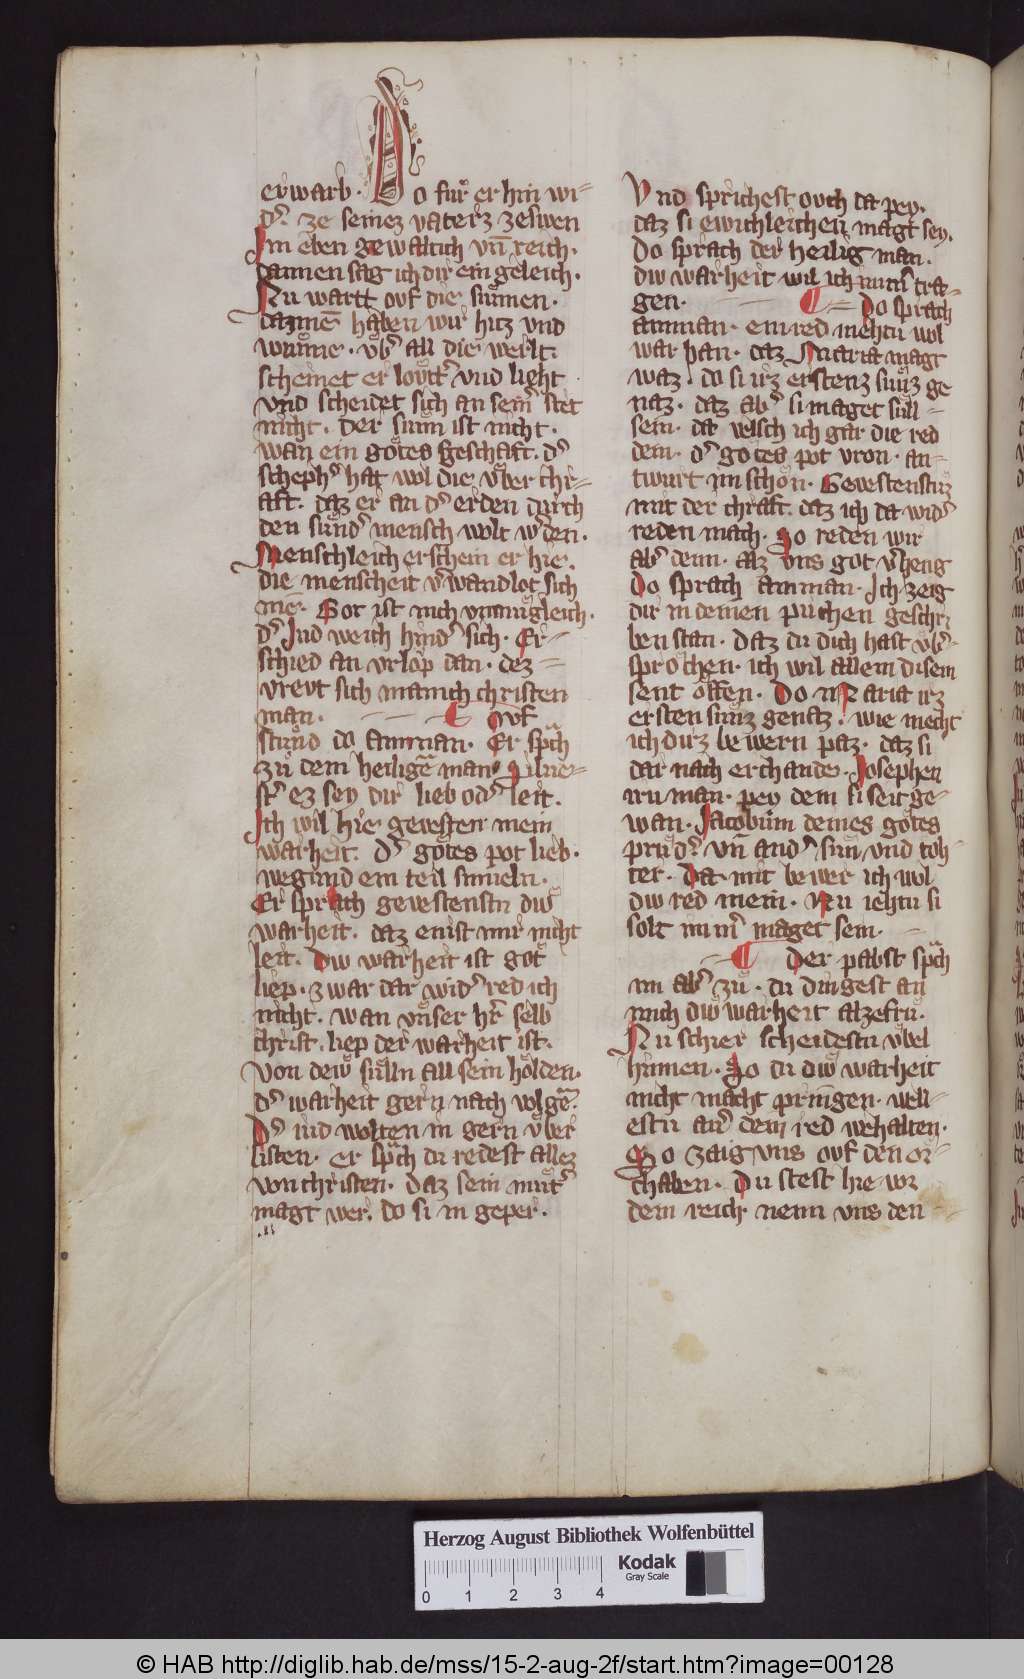 erwarb · Do fuͦr er hin wi-
dˢ ze seinez vaterz zeswen
Im eben gewaltich vn̄ reich ·
dannen sag ich dir ein geleich ·
Nu wartt ovf die sunnen ·
haben wir hitz vnd
wunne · vbˢ all die werlt ·
scheinet er vnd light
vnd scheidet sich an seinˢ stet
nicht · der sunn ist nicht ·
wan ein gotes geschaft · dˢ
schephˢ hat wol die vber chr-
aft · daz er an dˢ erden durch
den sundˢ mensch wolt wˢden ·
Menschleich erschein er hie ·
die menscheit vˢwandlot sich
me · Got ist nich vnmugleich ·
dˢ Jud weich hindˢ sich · Er-
schied an vrlop dan · dez
vrevt sich manich christen
man · ¶ Ovf
stuͦnd do amman · Er spͣch
zuͦ dem heiligē man Silue-
stˢ ez sey dir lieb odˢ leit ·
Ich wil hie gevesten mein
warheit · dˢ gotes pot lieb ·
wegund ein teil smieln ·
Er sprach gevestenstu diw
warheit · daz enist mir nicht
leit · Diw warheit ist got
liep · zwar dar widˢ red ich
nicht · wan vnser hˢr selb
christ · liep der warheit ist ·
von dew sulln all sein holden ·
dˢ warheit gern nach volgē ·
Dˢ iud wolten in gern vber
listen · er spͣch du redest allez
von christen · daz sein mutˢ
magt wer · do si in geper ·
Vnd sprichest ovch da pey ·
daz si ewichleichen magt sey ·
Do sprach der heilig man ·
diw warheit wil ich immˢ tra-
gen · ¶ Do sprach
amman · ein red mehtu wol
war han · daz Maria magt
waz · do si irz erstenz sunz ge
naz · daz abˢ si maget sull-
sein · da velsch ich gar die red
dein · dˢ gotes pot vron · an-
twurt im schon · Gevestenstuz
mit der chraft · daz ich da widˢ
reden mach · So reden wir
abˢ denn · alz vns got vˢheng
Do sprach amman · Ich zeig
dir in deinen puchen geschri
ben stan · Datz du dich hast vbˢ-
sprochen · ich wil allem disem
sent offen · Do Maria irz
ersten sunz genaz · wie mecht
ich dirz bewern paz · daz si
dar nach erchande · Josephen
irn man · pey dem si seit ge-
wan · Jacobum deines gotes
prudˢ vn̄ andˢ sun vnd toh-
ter · Da mit bewer ich wol
diw red mein · Nu iehtu si
solt immˢ maget sein ·
¶ Der pabst spͣch
im abˢ zuͦ · du dingest an
mich diw warheit alzefru ·
Nu schier scheidestu vbel
hinnen · So du diw warheit
nicht macht pringen · vell-
estu an dem red wehalten ·
So zaig vns ovf den or-
chaben · Du stest hie vor
dem reich nenn vns den
Herzog August Bibliothek Wolfenbüttel
Kodak
Gray Scale
0 1 2 3 4
© HAB http://diglib.hab.de/mss/15-2-aug-2f/start.htm?image=00128